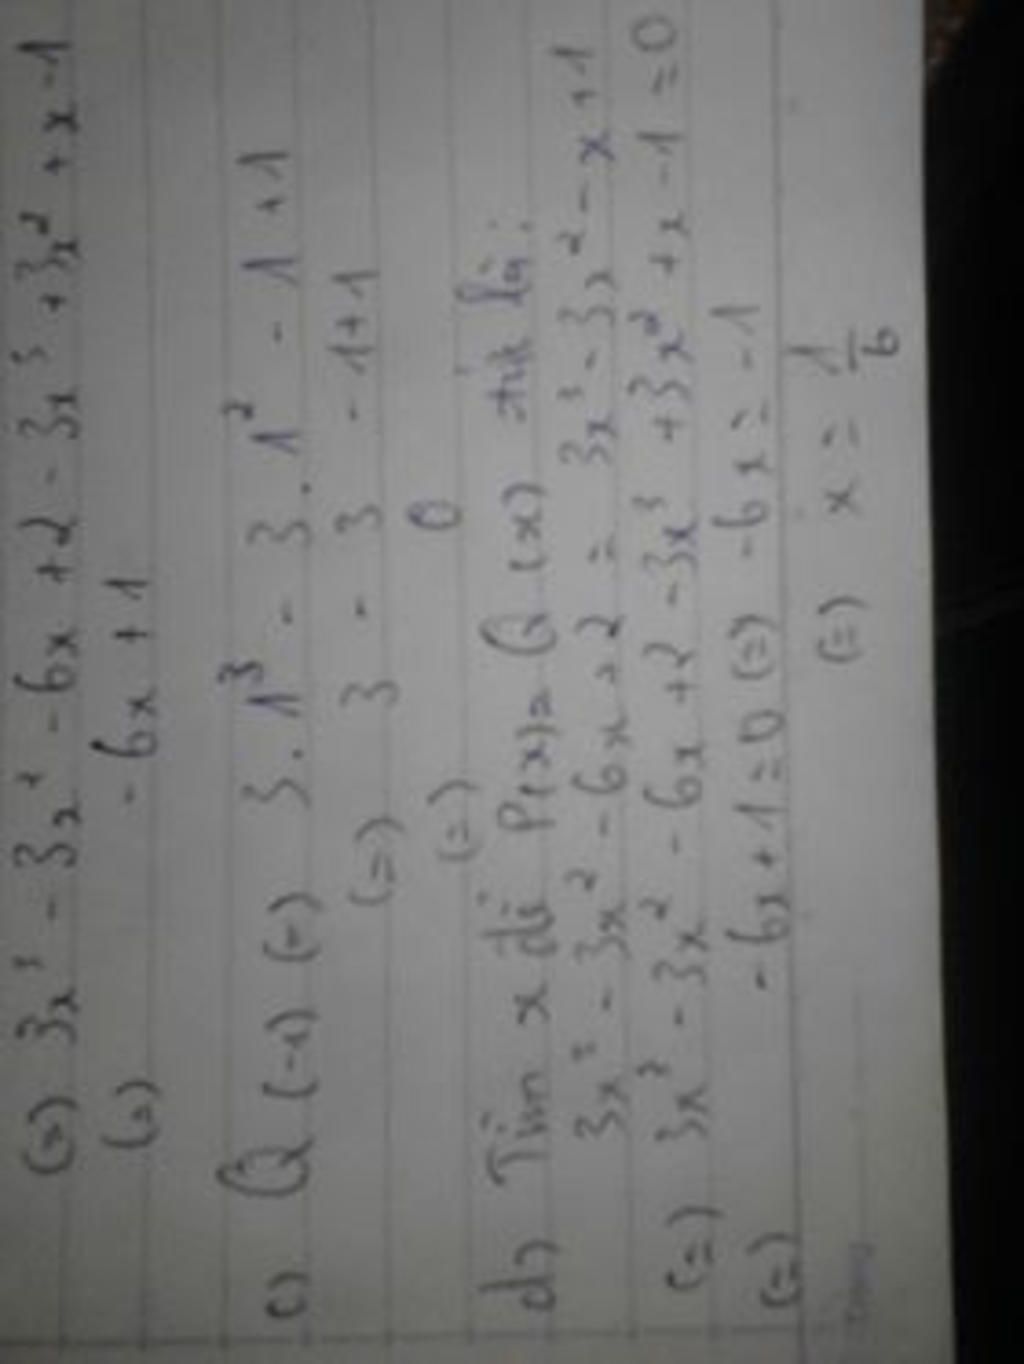 (=) 3x³ - 3x² - 6x + 2 - 3x³ + 3x² + x - 1
(=) - 6x + 1
c) Q (-1) (=) 3 . 1³ - 3 . 1² - 1 + 1
(=) 3 - 3 - 1 + 1
(=) 0
d) Tìm x để P(x) = Q (x) là:
3x³ - 3x² - 6x + 2 = 3x³ - 3x² - x + 1
(=) 3x³ - 3x² - 6x + 2 - 3x³ + 3x² + x - 1 = 0
(=) - 6x + 1 = 0 (=) - 6x = - 1
(=) x = 1/6